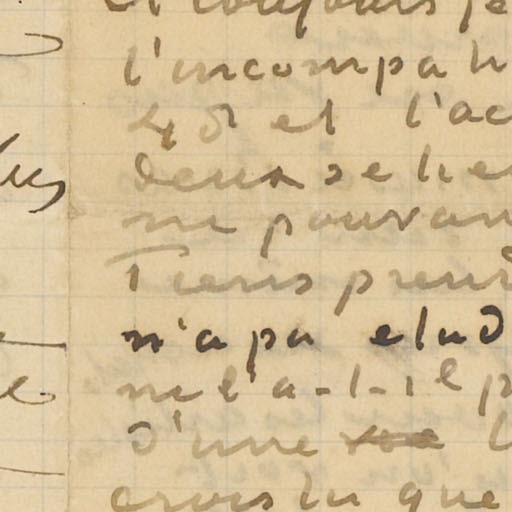 et toujours
l'incompati
et l'ac
deux se
ne pouvan
Tiens prend
n'a pa elud
ne l'a-t-il p
d'une
crois tu que